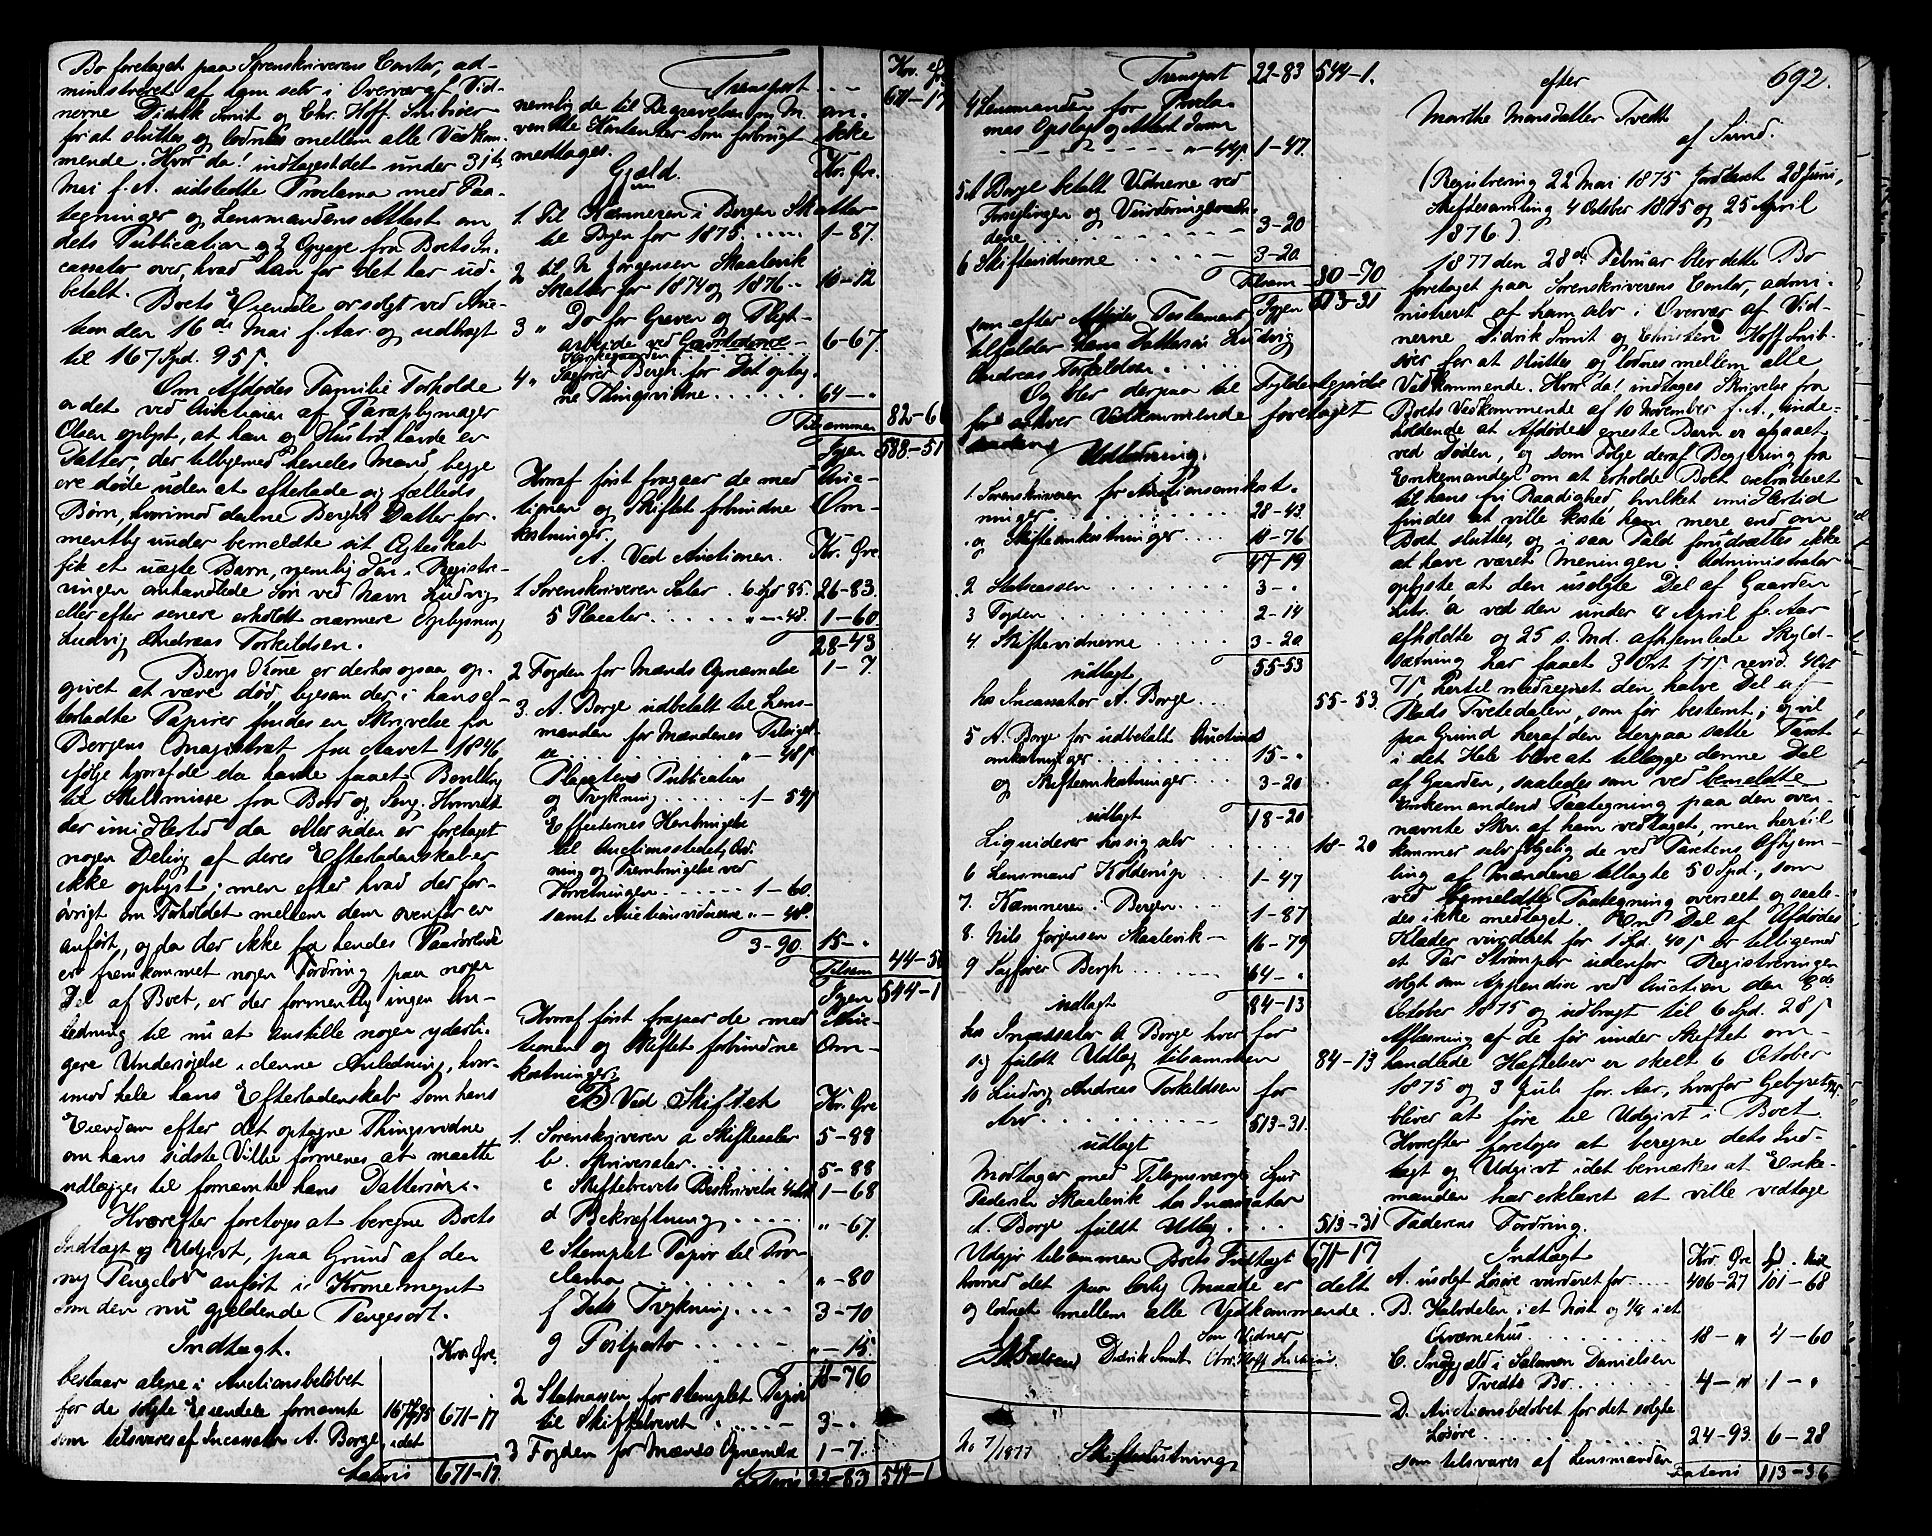 Bo foretaget paa Sorenskriverens Contor, ad-
ministreret af ham selv i Overvær af Vid-
nerne Didrik Smit og Chr. Hoff Smibøer
for at sluttes og lodnes mellem alle Vedkom-
mende. Hvor da! indtagest det under 31te
Mai f. A. udstedte Proclama med Paa-
tegninger og Lensmandens Attest om
dets Publication og 2 Opgave fra Boets In-
cassator over, hvad han for det har ud-
betalt.
Boets Eiendele er solgt ved Auc-
tion den 16de Mai f. Aar og udbragt
til 167 Spd. 95 s
Om Afdødes Familie Forholde
er det ved Auctionen af Paraplymager
Olsen oplyst, at han og Hustru havde en
Datter, der tilligemed hendes Mand, begge
ere døde uden at efterlade sig fælleds
Børn, hvorimod denne Berghs Datter for-
mentlig under bemeldte sit Ægteskab
fik et uægte Barn, nemlig den i Registre-
ringen omhandlede Søn ved Navn Ludvig
eller efter senere erholdt nærmere Oplysning
Ludvig Andreas Torkildsen.
Berghs Kone er derhos ogsaa op-
givet at være død, ligesom der i hans ef-
terladte Papirer findes en Skrivelse fra
Bergens Magistrat fra Aaret 1846
ifølge hvoraf de da havde faaet Bevilling
til Skilsmisse fra Bord og Seng. Hvorvidt
der imidlertid da eller siden er foretaget
nogen Deling af deres Efterladenskaber
ikke oplyst; men efter hvad der for-
øvrigt om Forholdet mellem dem ovenfor er
anført, og da der ikke fra hendes Paarørende
er fremkommet nogen Fordring paa nogen
Del af Boet, er der formentlig ingen An-
ledning til nu at anstille nogen yderli-
gere Undersøgelse i denne Anledning, hvor-
imod hele hans Efterladenskab som hans
Eiendom efter det optagne Thingsvidne
om hans sidste Villie formenes at maatte
udlægges til fornævnte hans Dattersøn.
Hvorefter foretoges at beregne Boets
Indtægt og Udgivt, paa Grund af den
ny Pengelov anført i Kronemynt
som den nu gjældende Pengesort.
Indtægt. Kr. Øre.
bestaar alene i Auctionsbeløbet
for de solgte Eiendele fornævnte 167 95 671-17
som tilsvares af Incassator A. Borge, idet
Lateris 671-17.
Kr. Ø
Transport 671-17
nemlig de til Begravelsen m. m. an-
vendte Kostender som forbrugt ikke
medtages.
Gjæld. Kr. Øre.
1. Til Kæmneren i Bergen Skatter
til Byen for 1875 1-87.
2 til N. Jørgensen Skaalevik
Skatter for 1874 og 1876 10-12
3 " Do for Graven og Pligt-
arbeide ved
6-67.
4 " Sagfører Bergh for Det optag-
ne Thingsvidne 64-"
Tilsammen 82-66
Igjen 588-51
Hvoraf først fragaar de med Auc-
tionen og Skiftet forbundne Om-
kostninger.
A. Ved Auctionen. Kr. Øre
1 Sorenskriveren Salær 6 Spd 85. 26-83.
5 Placater " - 48. 1-60
28-43
2 Fogden for Mænds Opnævnelse 1-7.
3. A. Borge udbetalt til Lens-
manden for Mændenes Tilsigel-
se " - 48 s
Placatens Publication
og Trykning 1-54 s
Effecternes Henbringelse
til Auctionsstedet, Ord-
ning og Frembringelse ved
Forretningen 1-60.
samt Auctionsvidnerne " - 48.
3-90 15-"
Tilsam 44-50
Igjen 544-1
Hvoraf først fragaar de med Auc-
tionen og Skiftet forbundne Om-
kostninger
B. Ved Skiftet Kr. Øre
1. Sorenskriveren a Skiftesalær 5-88
b. Skriversalær 5-88
c Skiftebrevets Beskrivelse 1-68
d Bekræftning "-67.
e Stemplet Papir til Pro-
clama "-80
f Dets Trykning 3-70
g Postporto "-15.
18-76
2 Statcassen for stemplet Papir
til Skiftebrevet 3-"
3 Fogden for Mænds Opnævnelse 1-7
Lateris 22-83 544-1
Transport 22-83 544-1.
4 Lensmanden for Procla-
mas Opslag og Attest derom
" 44 s. 1-47.
5 A Borge betalt Vidnerne ved
Forseglingen og Vurderingsmæn-
dene 3-20
6 Skiftevidnerne 3-20
Tilsam 30-70
Igjen 513-31
som efter Afdødes Testament
tilfalder Hans Dattersøn Ludvig
Andreas Torkeldsen.
Og blev derpaa til Fyldestgjørelse
for enhver Vedkommende foretaget
saadan
Udlodning.
1. Sorenskriveren for Auctionsomkost-
ninger 28-43
og Skifteomkostninger 18-76
47-19
2 Statscassen 3-"
3 Fogden 2-14
4. Skiftevidnerne 3-20
udlagt 55-53
hos Incassator A. Borge 55-53.
5 A. Borge for udbetalt Auctions
omkostninger 15-"
og Skifteomkostninger 3-20
udlagt 18-20
Liquiderer hos sig selv 18-20
6 Lensmand Kolderup 1-47
7. Kæmneren i Bergen 1-87
8. Nils Jørgensen Skaalevik 16-79
9 Sagfører Bergh 64-"
udlagt 84-13
hos Incassator A Borge hver for
sig fuldt Udlæg tilsammen 84-13
10 Ludvig Andreas Torkeldsen for
Arv 513-31.
udlagt
Modtager med Tilsynsværge Sjur
Pedersen Skaalevik hos Incassator
A. Borge fuldt Udlæg 513-31
Udgjør tilsammen Boets Indtægt 671-17.
hvormed det paa lovlig Maade er delt
og lodnet mellem alle Vedkommende.
Som Vidner
Didrik Smit Chr. Hoff
No 7/1877 Skifteslutning
692.
efter
Marthe Monsdatter Tvedt
af Sund.
(Registrering 22 Mai 1875 fortsat 28 Juni,
Skiftesamling 4 October 1875 og 25 April
1876.)
1877 den 28de Februar blev dette Bo
foretaget paa Sorenskriverens Contor, admi-
nistreret af ham selv i Overvær af Vid-
nerne Didrik Smit og Christen Hoff Smib-
øer for at sluttes og lodnes mellem alle
Vedkommende. Hvor da! indtages Skrivelse fra
Boets Vedkommende af 10 November f. A., inde-
holdende at Afdødes eneste Barn er afgaaet
ved Døden, og som Følge deraf Begjæring fra
Enkemanden om at erholde Boet extraderet
til hans fri Raadighed hvilket imidlertid
findes at ville koste ham mere end om
Boet sluttes, og i saa Fald forudsættes ikke
at have været Meningen. Administrator
oplyste at den usolgte Del af Gaarden
Litr. a ved den under 4 April f. Aar
afholdte og 25 s. Md. afhjemlede Skyld-
sætning har faaet 3 Ort 17 s revid. 4 Ort
7 s, hertil medregnet den halve Del af
Plads Tvetedalen, som før bestemt; og vil
paa Grund heraf den derpaa satte Taxt
i det Hele blive at tillægge denne Del
af Gaarden, saaledes som ved bemeldte
Enkemandens Paategning paa den oven-
nævnte Skr. af ham vedtaget, men hertil
kommer selvfølgelig de ved Taxtens Afhjem-
ling af Mændene tillagte 50 Spd., som
ved bemeldte Paategning overseet og saale-
des ikke medtaget. En Del af Afdødes
Klæder vurderet for 1 Spd. 40 s er tilligemed
et Par Strømper udenfor Registreringen
solgt som Appendix ved Auction den
October 1875 og udbragt til 6 Spd. 28 s
Aflæsning af de før under Skiftet om-
handlede Hæftelser er skeet 6 October
1875 og 3 Juli for. Aar, hvorfor Gebyret
bliver at føre til Udgivt i Boet.
Hvorefter foretoges at beregne dets Ind-
tægt og Udgivt idet bemærkes at Enke-
manden har erklæret at ville vedtage
Faderens Fordring.
Indtægt Kr. Øre Spd. Skil
A. usolgt Løsøre vurderet for 406-27 101-68
B. Halvdelen i et Nøst og 1/8 i et
Qværnehus 18-" 4-60
C. Indgjæld i Salamon Danielsen
Tvedts Bo 4-" 1-"
D. Auctionsbeløbet for det solgte
Løsøre 24-93. 6-28
som tilsvares af Lensmanden
Lateris 113-36